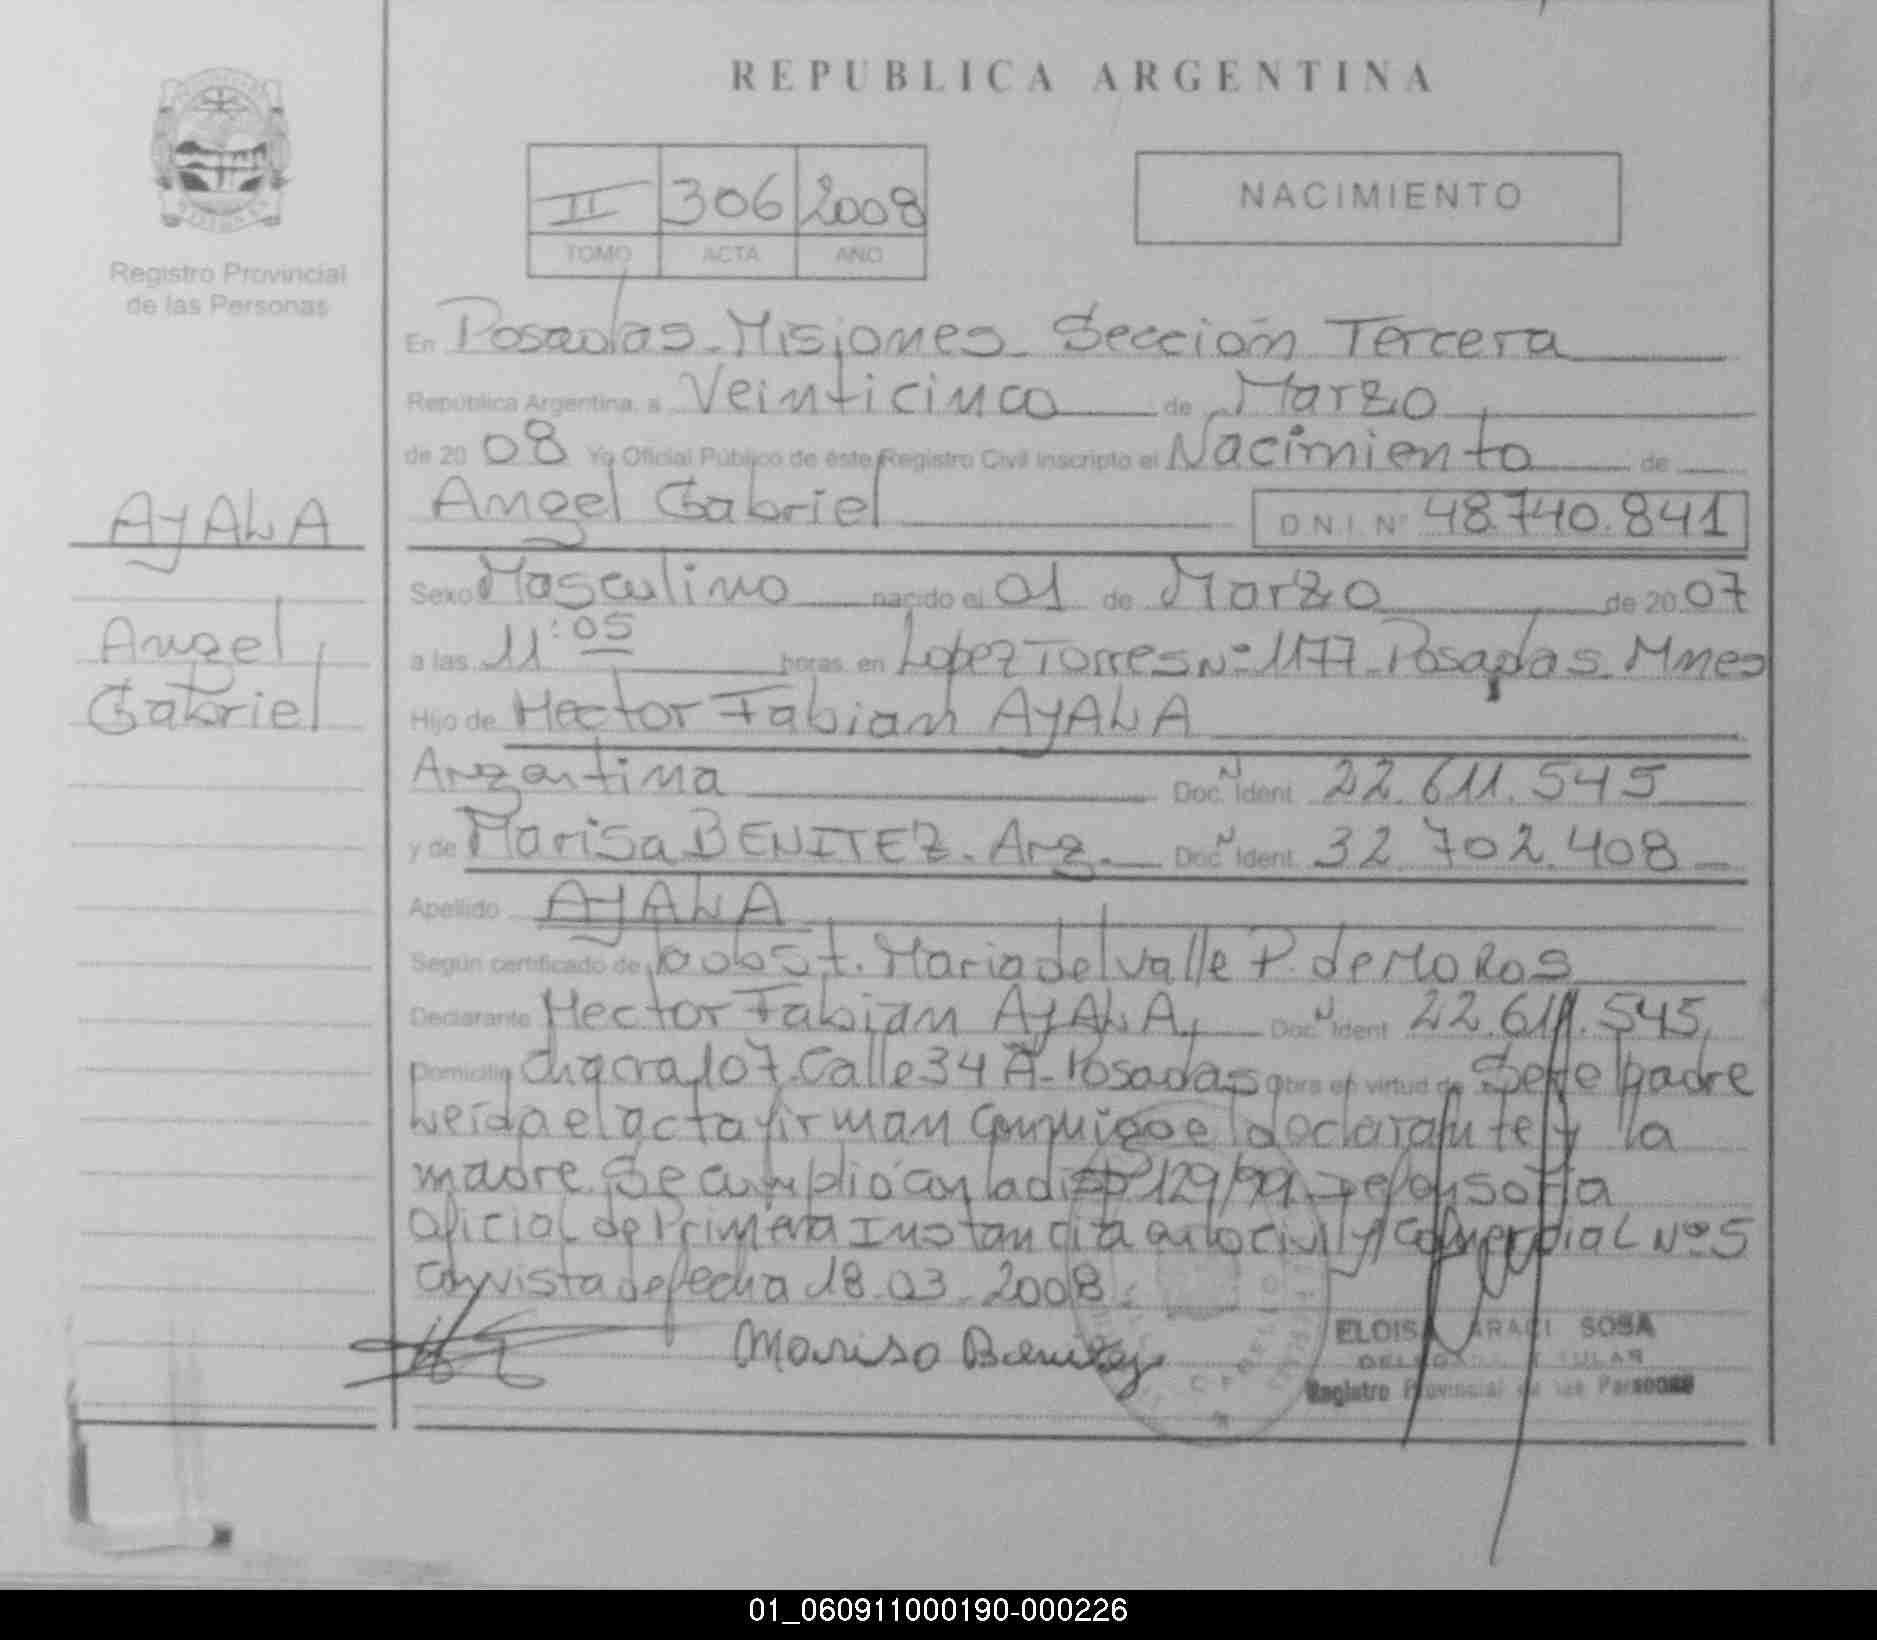 REPUBLICA ARGENTINA
II 306 2008
TOMO ACTA AÑO
NACIMIENTO
Registro Provincial
de las Personas
AYALA
Angel
Gabriel
En Posadas - Misiones - Sección Tercera
República Argentina, a Veinticinco de Marzo
de 20 08 Yo Oficial Público de éste Registro Civil inscripto el Nacimiento de
Angel Gabriel D N I Nº 48.740.841
Sexo Masculino nacido el 01 de Marzo de 20 07
a las 11:05 horas en Lopez Torres Nº 1177 - Posadas Mnes
Hijo de Hector Fabian AYALA
Argentina Doc. N Ident. 22.611.545
y de Marisa BENITEZ - Arg. Doc. N Ident. 32.702.408
Apellido AYALA
Según certificado de obst. Maria del Valle P. de Moros
Declarante Hector Fabian AYALA, Doc. N Ident. 22.611.545,
Domicilio Chacra 107 - Calle 34 A - Posadas Obra en virtud de Ser el padre
Leida el acta firman conmigo el declarante y la
madre. Se cumplio con la disp 129/99
Oficial de Primera Instancia en lo Civil y Comercial Nº 5
con vista de fecha 18-03-2008.
Marisa Benitez
ELOISA ARACI SOSA
DELEGADA TITULAR
Registro Provincial de las Personas
01_060911000190-000226